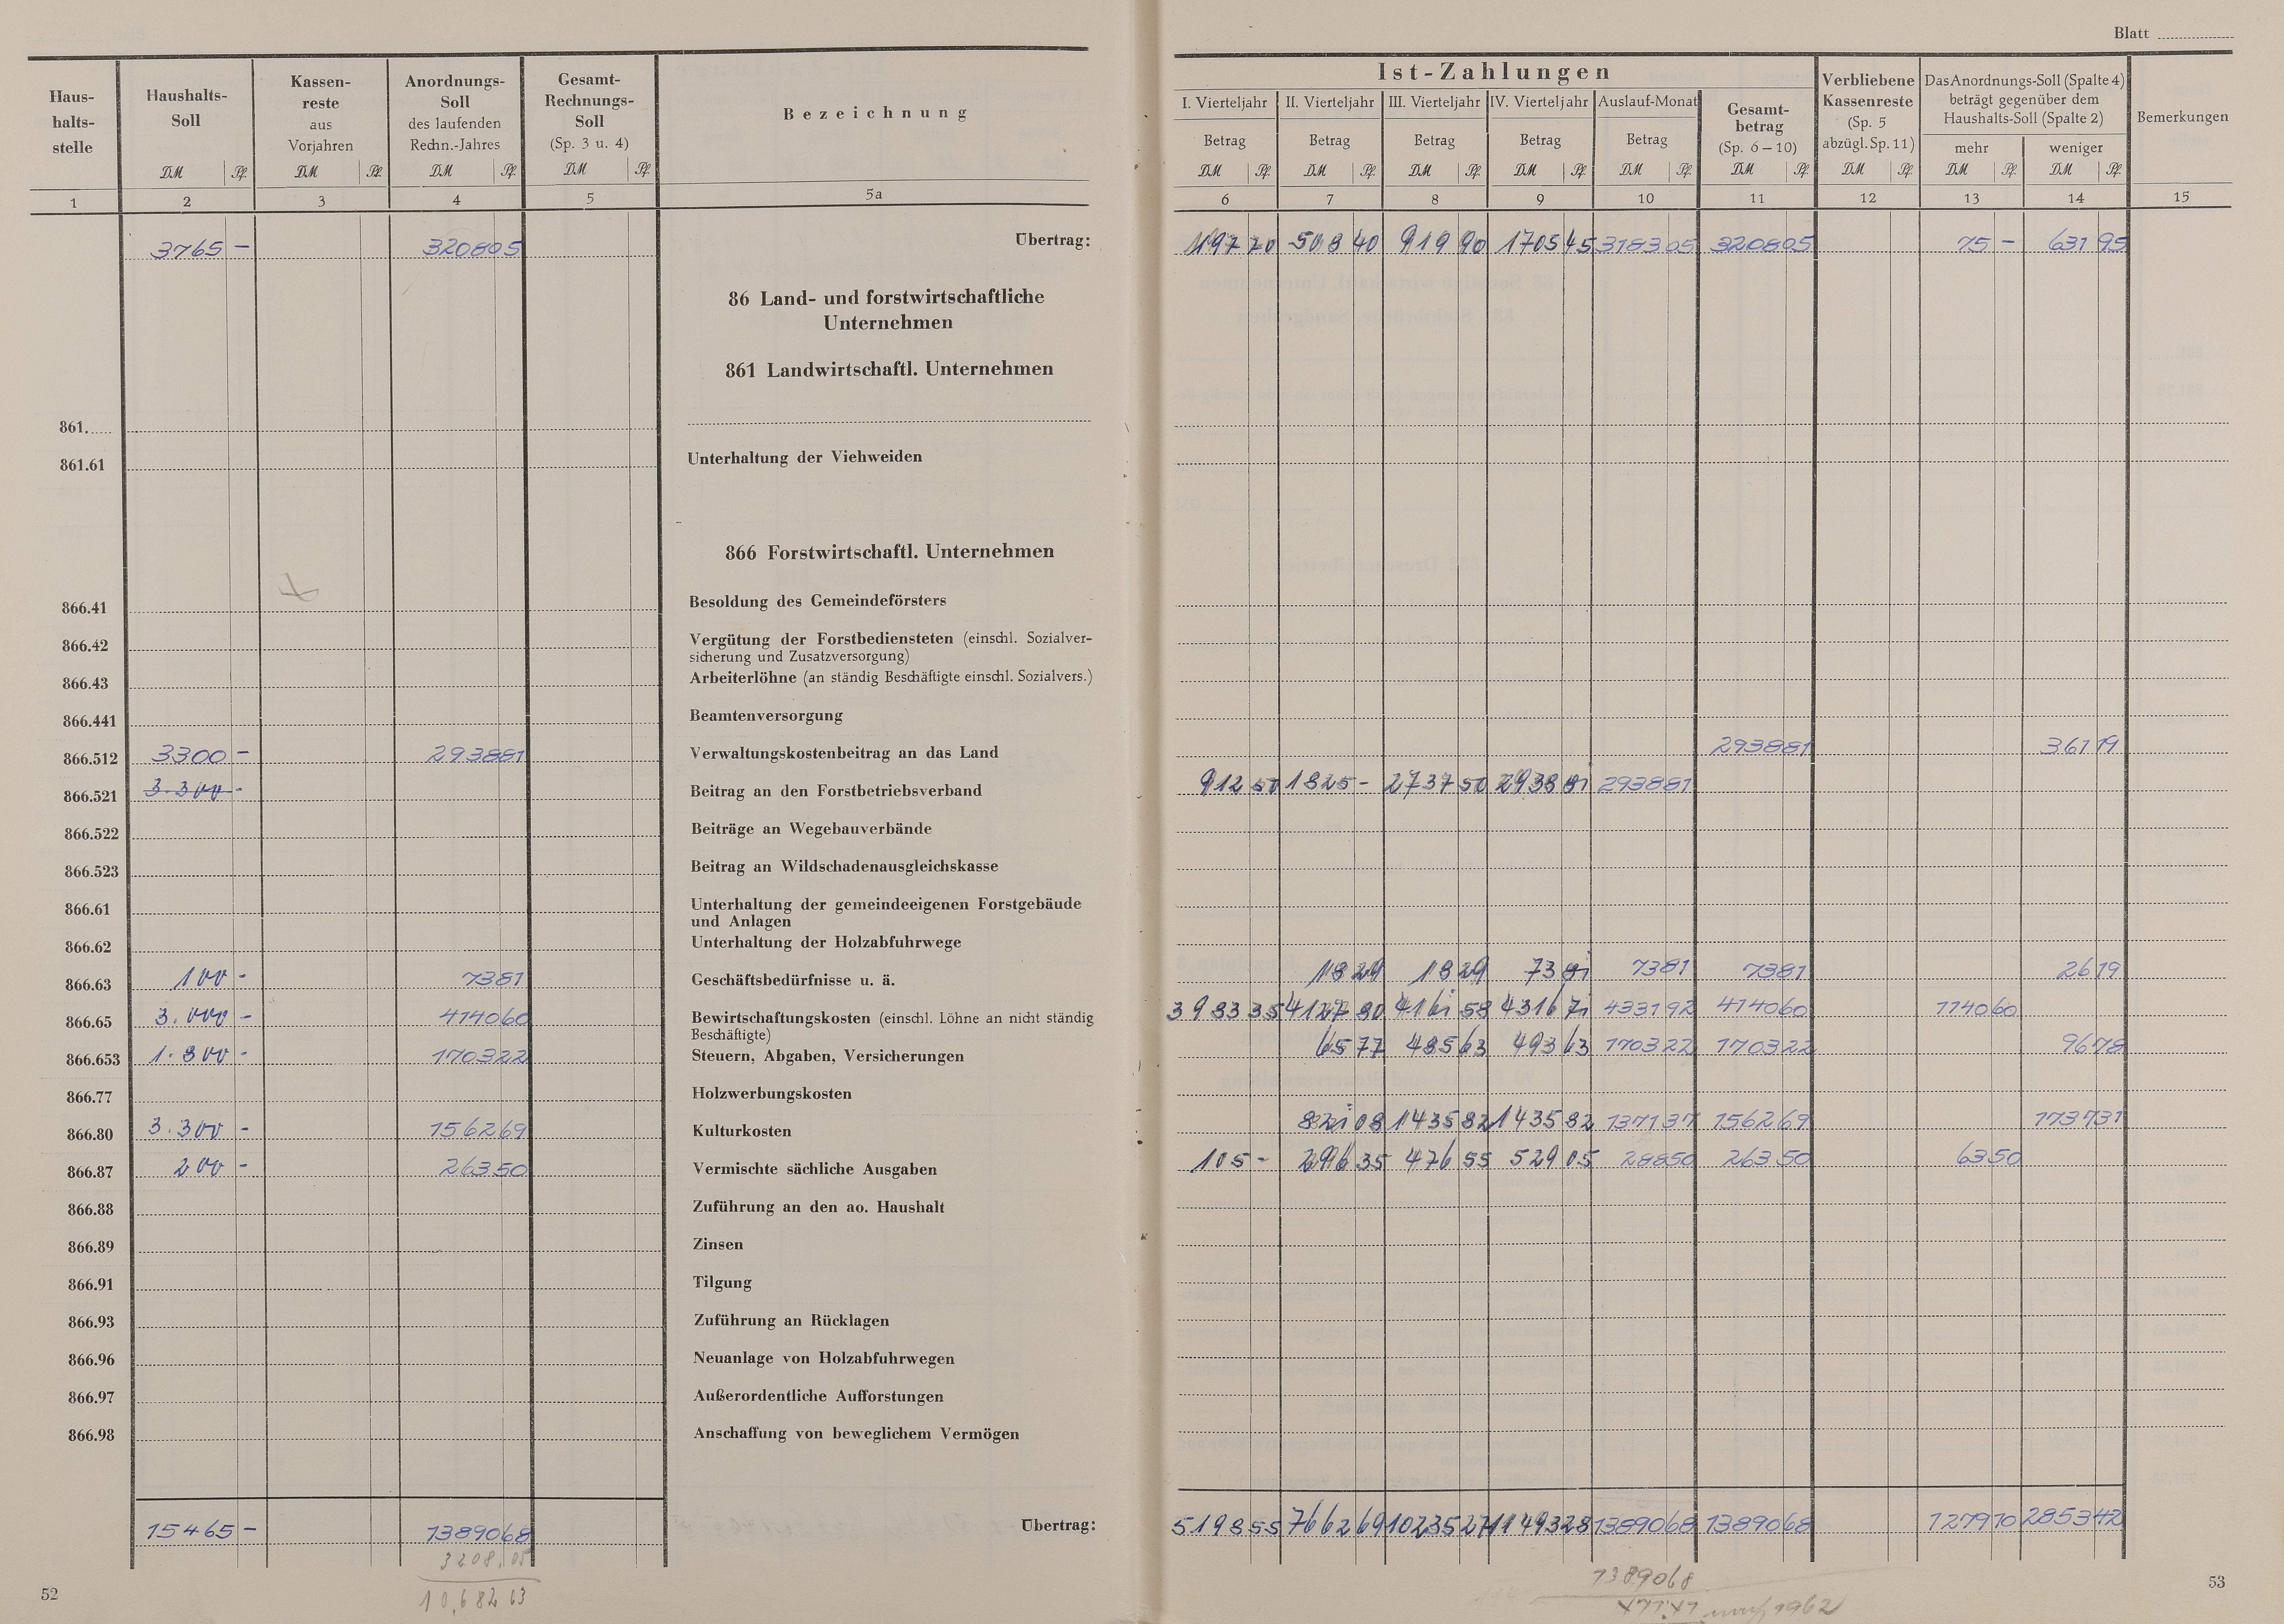 Blatt
Haus-
halts-
stelle
Haushalts-
Soll
DM Pf.
Kassen-
reste
aus
Vorjahren
DM Pf.
Anordnungs-
Soll
des laufenden
Rechn.-Jahres
DM Pf.
Gesamt-
Rechnungs-
Soll
(Sp. 3 u. 4)
DM Pf.
Bezeichnung
Ist-Zahlungen
I. Vierteljahr II. Vierteljahr III. Vierteljahr IV. Vierteljahr Auslauf-Monat
Betrag Betrag Betrag Betrag Betrag
DM Pf. DM Pf. DM Pf. DM Pf. DM Pf.
Gesamt-
betrag
(Sp. 6–10)
DM Pf.
Verbliebene
Kassenreste
(Sp. 5
abzügl. Sp. 11)
DM Pf.
Das Anordnungs-Soll (Spalte 4)
beträgt gegenüber dem
Haushalts-Soll (Spalte 2)
mehr weniger
DM Pf. DM Pf.
Bemerkungen
1 2 3 4 5 5a 6 7 8 9 10 11 12 13 14 15
3765 – 3208 05 Übertrag: 197 70 508 40 919 90 1705 45 3183 05 3208 05 75 – 631 95
86 Land- und forstwirtschaftliche
Unternehmen
861 Landwirtschaftl. Unternehmen
861.
861.61 Unterhaltung der Viehweiden
866 Forstwirtschaftl. Unternehmen
866.41 Besoldung des Gemeindeförsters
866.42 Vergütung der Forstbediensteten (einschl. Sozialver-
sicherung und Zusatzversorgung)
866.43 Arbeiterlöhne (an ständig Beschäftigte einschl. Sozialvers.)
866.441 Beamtenversorgung
866.512 3300 – 2938 81 Verwaltungskostenbeitrag an das Land 2938 81 361 19
866.521 3.300 - Beitrag an den Forstbetriebsverband 912 50 1825 – 2737 50 2938 81 2938 81
866.522 Beiträge an Wegebauverbände
866.523 Beitrag an Wildschadenausgleichskasse
866.61 Unterhaltung der gemeindeeigenen Forstgebäude
und Anlagen
866.62 Unterhaltung der Holzabfuhrwege
866.63 100 - 73 81 Geschäftsbedürfnisse u. ä. 18 29 18 29 73 81 73 81 73 81 26 19
866.65 3.000 - 4140 60 Bewirtschaftungskosten (einschl. Löhne an nicht ständig
Beschäftigte) 3983 35 4127 80 4161 58 4316 71 4331 92 4140 60 1140 60
866.653 1.800 - 1703 22 Steuern, Abgaben, Versicherungen 65 77 485 63 493 63 1703 22 1703 22 96 78
866.77 Holzwerbungskosten
866.80 3.300 - 1562 69 Kulturkosten 821 08 1435 82 1435 82 1371 37 1562 69 1737 31
866.87 200 - 263 50 Vermischte sächliche Ausgaben 105 – 296 35 476 55 529 05 288 50 263 50 63 50
866.88 Zuführung an den ao. Haushalt
866.89 Zinsen
866.91 Tilgung
866.93 Zuführung an Rücklagen
866.96 Neuanlage von Holzabfuhrwegen
866.97 Außerordentliche Aufforstungen
866.98 Anschaffung von beweglichem Vermögen
15465 – 13890 68 Übertrag: 5198 55 7662 69 10235 27 11493 28 13890 68 13890 68 1279 10 2853 42
3208,05
10.682 63
13890 68
1962
52
53